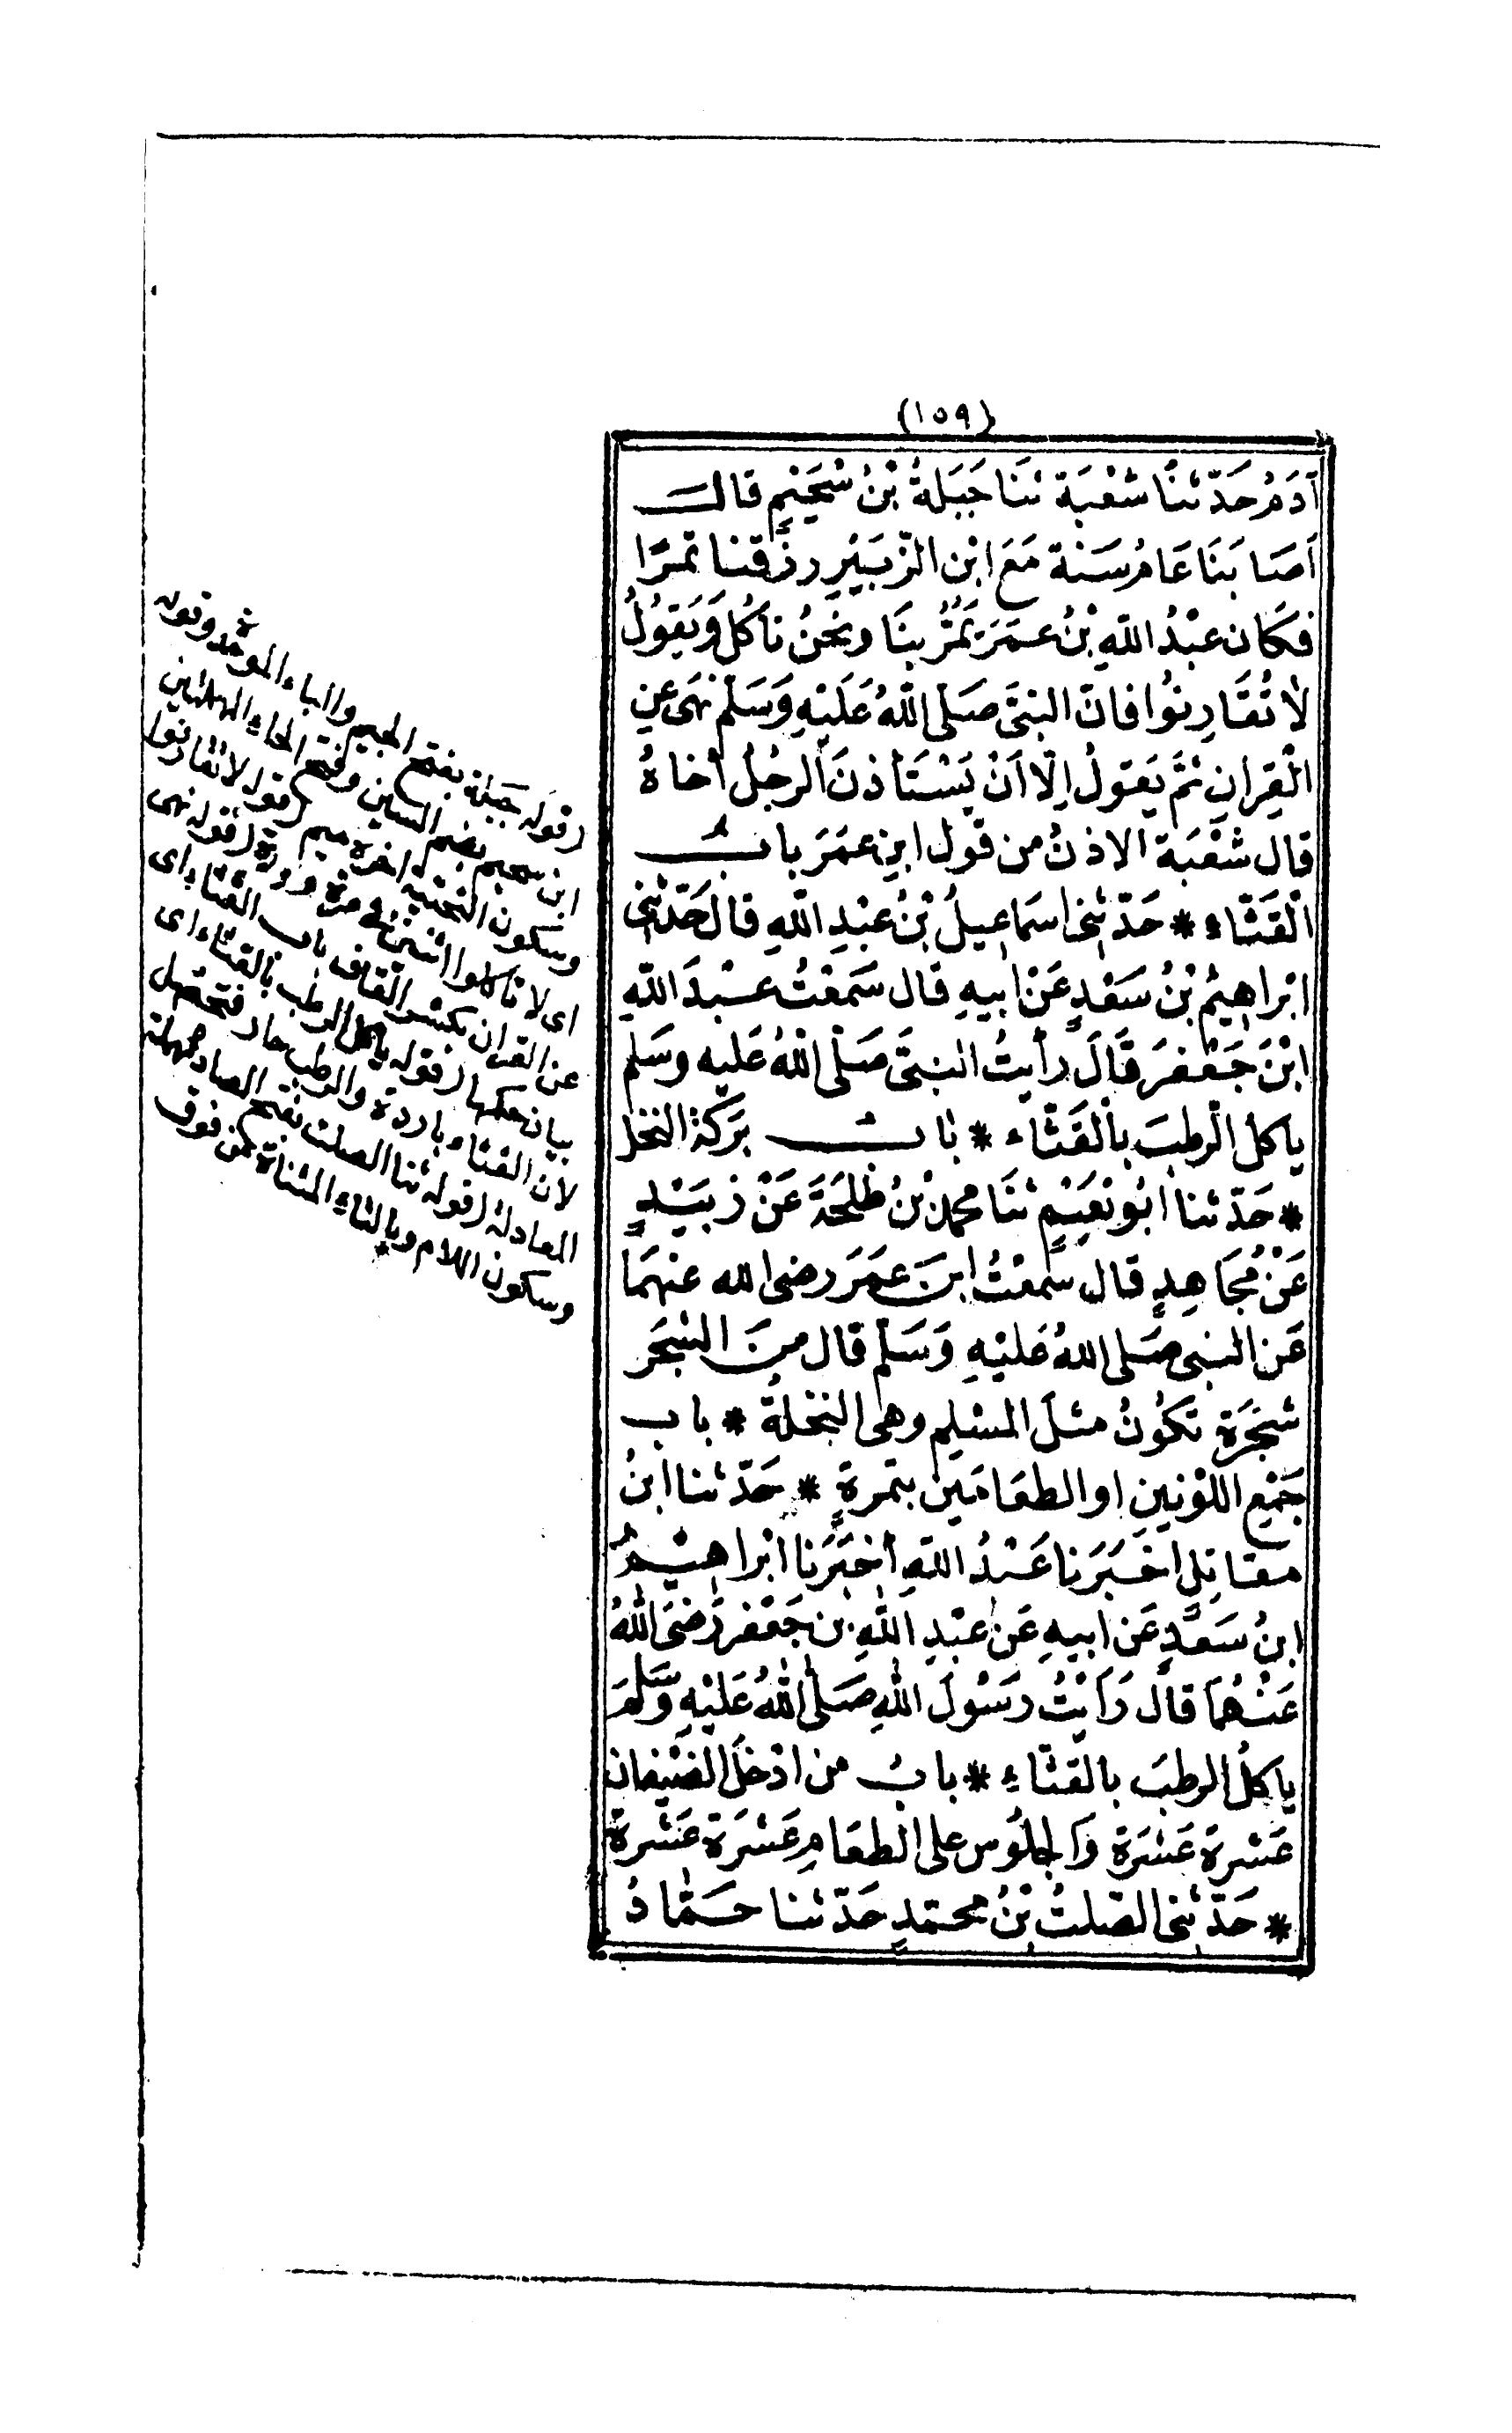 (١٥٩)
آدَمُ حَدّثنَا شعْبَة ثنَا جَبَلةُ بْنُ سُحَيْمٍ قال
اَصَابَنَا عَامُ سَنة مَعَ ابْنِ الزّبَيْرِ رزقنا تمرًا
فكَان عبْدُ اللهِ بْنُ عمَرَ يَمُرُّ بنَا ونحْنُ نأكُل وَيَقوُلُ
لاٰ تُقَارِنوُا فانّ النبىَّ صَلى اللهُ عَلَيْهِ وَسَلم نهَى عنِ
القِرانِ ثمّ يَقولُ اِلّا اَنْ يَسْتَأذنَ الرجُلُ أخاهُ
قال شعْبَة الاذنُ من قولِ ابنِ عمَرَ بابُ
القَثّاءِ * حَدّثنى اسمَاعِيلُ بْنُ عبْدِ اللهِ قال حَدّثنى
ابْراهِيمُ بْنُ سَعْدٍ عَنْ ابيهِ قال سَمعْتُ عبْدَ اللهِ
ابْنَ جَعْفرَ قَالَ رأيتُ النبىَّ صَلى اللهُ عَليه وسَلم
ياكل الرطبَ بالقَثّاء * بابُ بَرَكة النخل
* حَدّثنا ابُو نعَيْمٍ ثنَا محمد بْنُ طلحَةَ عَنْ زبَيْدٍ
عَنْ مُجَاهِدٍ قال سَمعْتُ ابنَ عمَرَ رضى الله عنهمَا
عَن النبى صَلى اللهُ عَليْهِ وَسَلم قال منَ الشجَر
شجَرَة تكوُنُ مثلَ المسْلِم وهى النخْلةُ * باب
جَمْعِ اللوْنينِ او الطعَامَيْن بتمرةٍ * حَدّثنا ابنُ
مقاتِلٍ اخبَرَنا عَبْدُ اللهِ أخبَرَنا ابْراهيْمُ
ابنُ سَعْدٍ عَن ابيهِ عَن عبْدِ اللهِ بن جَعْفر رَضىَ اللهُ
عَنْهُمَا قالَ رَأيْتُ رسوُلَ اللهِ صَلى اللهُ عَليْهِ وَسَلمَ
ياكلُ الرطبَ بالقثّاءِ * بابُ من ادْخلَ الضيْفان
عَشرة عَشرَة وَالجلوُس على الطعَامِ عَشرَة عَشرة
* حَدّثنى الصّلتُ بْنُ محمّدٍ حَدّثنا حمَّادُ
(قوله جبلة بفتح الجيم والباء الموحدة وقوله
ابن سحيم بضم السين وفتح الحاء المهملتين
وسكون التحتية آخره ميم (قوله لا تقارنوا
اى لا تأكلوا اثنتين فى مرة (قوله نهى
عن القران بكسر القاف باب القثاء اى
بيان حكمها (قوله ياكل الرطب بالقثاء اى
لان القثاء باردة والرطب حار فتحصل
المعادلة (قوله ثنا الصلت بفتح الصاد المهملة
وسكون اللام وبالتاء المثناة من فوق
*